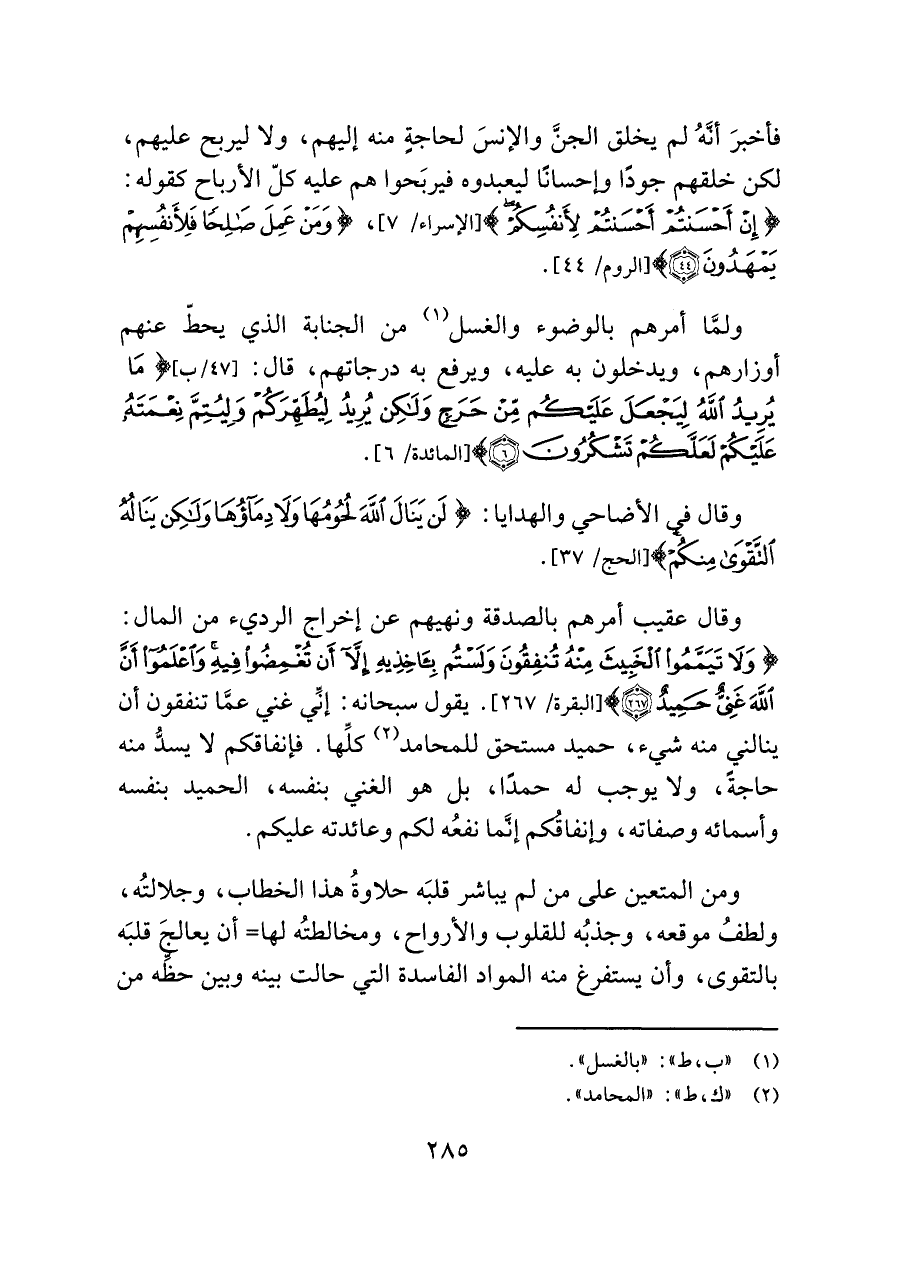 فأخبرَ أنَّهُ لم يخلق الجنَّ والإنسَ لحاجةٍ منه إليهم، ولا ليربح عليهم،
لكن خلقهم جودًا وإحسانًا ليعبدوه فيربَحوا هم عليه كلّ الأرباح كقوله:
﴿ إِنْ أَحْسَنتُمْ أَحْسَنتُمْ لِأَنفُسِكُمْ ۖ ﴾[الإسراء/ ٧]، ﴿ وَمَنْ عَمِلَ صَـٰلِحًا فَلِأَنفُسِهِمْ
يَمْهَدُونَ ٤٤﴾[الروم/ ٤٤].
ولمَّا أمرهم بالوضوء والغسل(١) من الجنابة الذي يحطّ عنهم
أوزارهم، ويدخلون به عليه، ويرفع به درجاتهم، قال: [٤٧/ب]﴿ مَا
يُرِيدُ ٱللَّهُ لِيَجْعَلَ عَلَيْكُم مِّنْ حَرَجٍ وَلَـٰكِن يُرِيدُ لِيُطَهِّرَكُمْ وَلِيُتِمَّ نِعْمَتَهُۥ
عَلَيْكُمْ لَعَلَّكُمْ تَشْكُرُونَ ٦﴾[المائدة/ ٦].
وقال في الأضاحي والهدايا: ﴿ لَن يَنَالَ ٱللَّهَ لُحُومُهَا وَلَا دِمَآؤُهَا وَلَـٰكِن يَنَالُهُ
ٱلتَّقْوَىٰ مِنكُمْ﴾[الحج/ ٣٧].
وقال عقيب أمرهم بالصدقة ونهيهم عن إخراج الرديء من المال:
﴿ وَلَا تَيَمَّمُوا۟ ٱلْخَبِيثَ مِنْهُ تُنفِقُونَ وَلَسْتُم بِـَٔاخِذِيهِ إِلَّآ أَن تُغْمِضُوا۟ فِيهِ ۚ وَٱعْلَمُوٓا۟ أَنَّ
ٱللَّهَ غَنِىٌّ حَمِيدٌ ٢٦٧﴾[البقرة/ ٢٦٧]. يقول سبحانه: إنِّي غني عمَّا تنفقون أن
ينالني منه شيء، حميد مستحق للمحامد(٢) كلِّها. فإنفاقكم لا يسدُّ منه
حاجةً، ولا يوجب له حمدًا، بل هو الغني بنفسه، الحميد بنفسه
وأسمائه وصفاته، وإنفاقُكم إنَّما نفعُه لكم وعائدته عليكم.
ومن المتعين على من لم يباشر قلبَه حلاوةُ هذا الخطاب، وجلالتُه،
ولطفُ موقعه، وجذبُه للقلوب والأرواح، ومخالطتُه لها= أن يعالجَ قلبَه
بالتقوى، وأن يستفرغ منه المواد الفاسدة التي حالت بينه وبين حظِّه من
(١) «ب، ط»: «بالغسل».
(٢) «ك، ط»: «المحامد».
٢٨٥